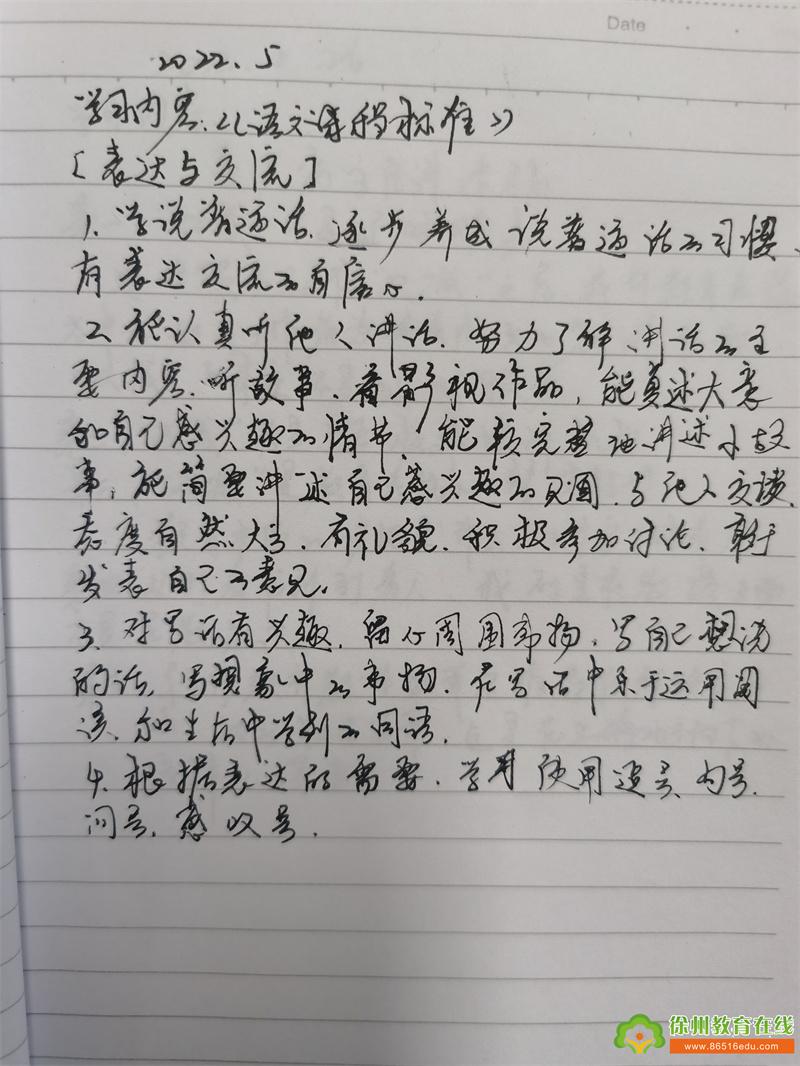 Date
2022.5
学习内容:《语文课程标准》
[表达与交流]
1、学说普通话,逐步养成说普通话的习惯,
有表达交流的自信心.
2、能认真听他人讲话,努力了解讲话的主
要内容.听故事、看影视作品,能复述大意
和自己感兴趣的情节,能较完整地讲述小故
事,能简要讲述自己感兴趣的见闻.与他人交谈,
态度自然大方,有礼貌.积极参加讨论,敢于
发表自己的意见.
3、对写话有兴趣,留心周围事物,写自己想说
的话,写想象中的事物.在写话中乐于运用阅
读和生活中学到的词语.
4、根据表达的需要,学习使用逗号、句号、
问号、感叹号.
徐州教育在线
www.86516edu.com